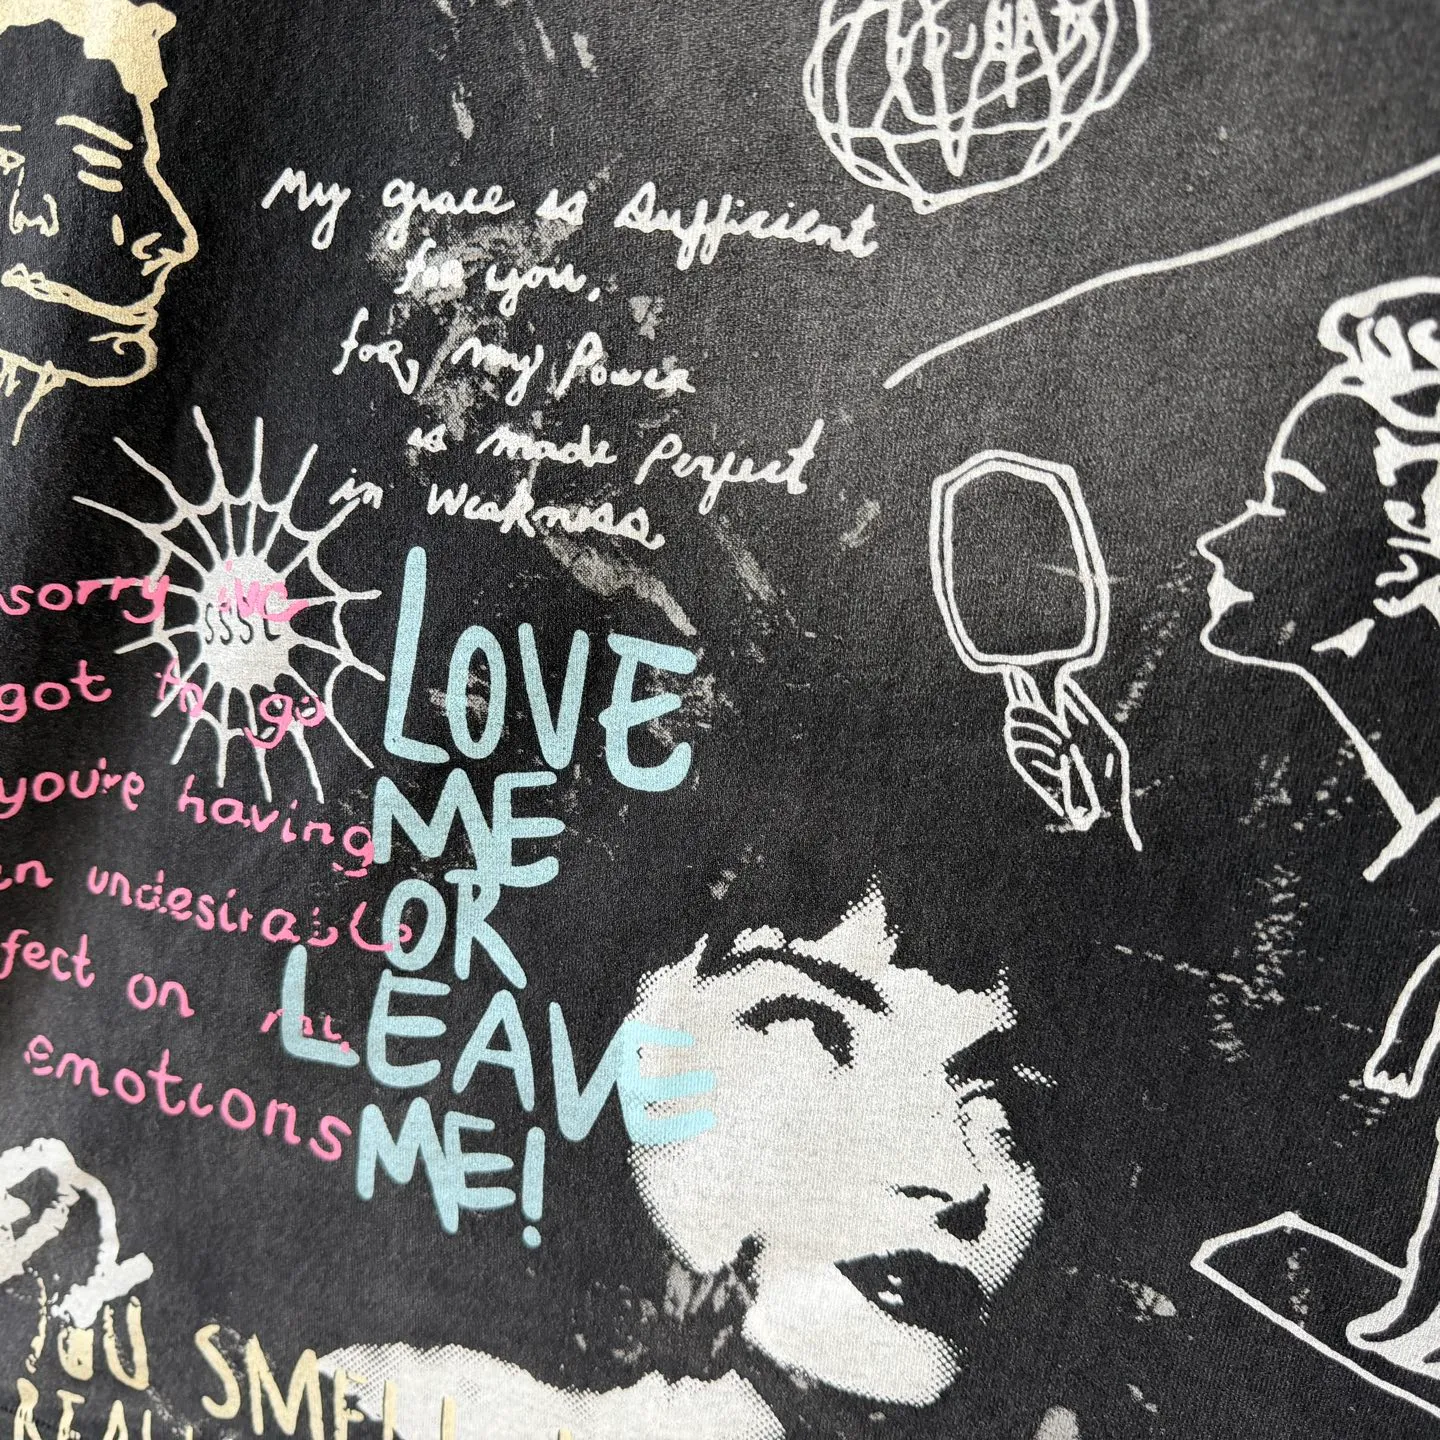 My grace is sufficient
for you,
for, my Power
is made perfect
in weakness,
sorry ive
got to go
you're having
an undesirable
fect on my
emotions
LOVE
ME
OR
LEAVE
ME!
YOU SMELL
REAL